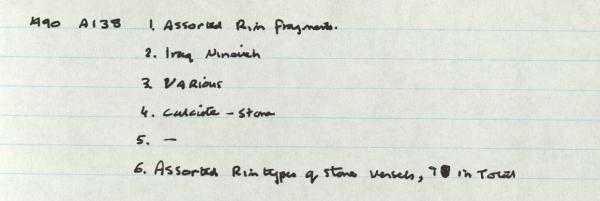 A90 A138 1. Assorted Rim fragments.
2. Iraq Nineveh
3. VARIOUS
4. Calcite - Stone
5. -
6. Assorted Rim types of Stone Vessels, in Total